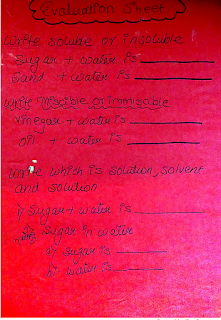 Evaluation Sheet
Write soluble or insoluble
Sugar + water is
Sand + water is
Write Miscible or immiscible
Vinegar + water is
Oil + water is
Write which is solution, solvent
and solution
1) Sugar + water is
2) Sugar in water
a) Sugar is
b) water is